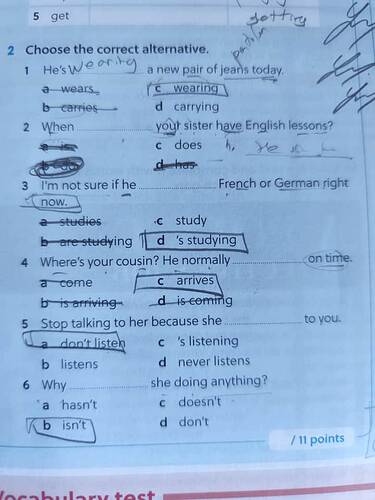 5 get
getting
2 Choose the correct alternative.
1 He's wearing a new pair of jeans today.
a wears c wearing
b carries d carrying
2 When ............ your sister have English lessons?
a is c does
d has
3 I'm not sure if he ............ French or German right
now.
a studies c study
b are studying d 's studying
4 Where's your cousin? He normally ............ on time.
a come c arrives
b is arriving d is coming
5 Stop talking to her because she ............ to you.
a don't listen c 's listening
b listens d never listens
6 Why ............ she doing anything?
a hasn't c doesn't
b isn't d don't
/ 11 points
Vocabulary test